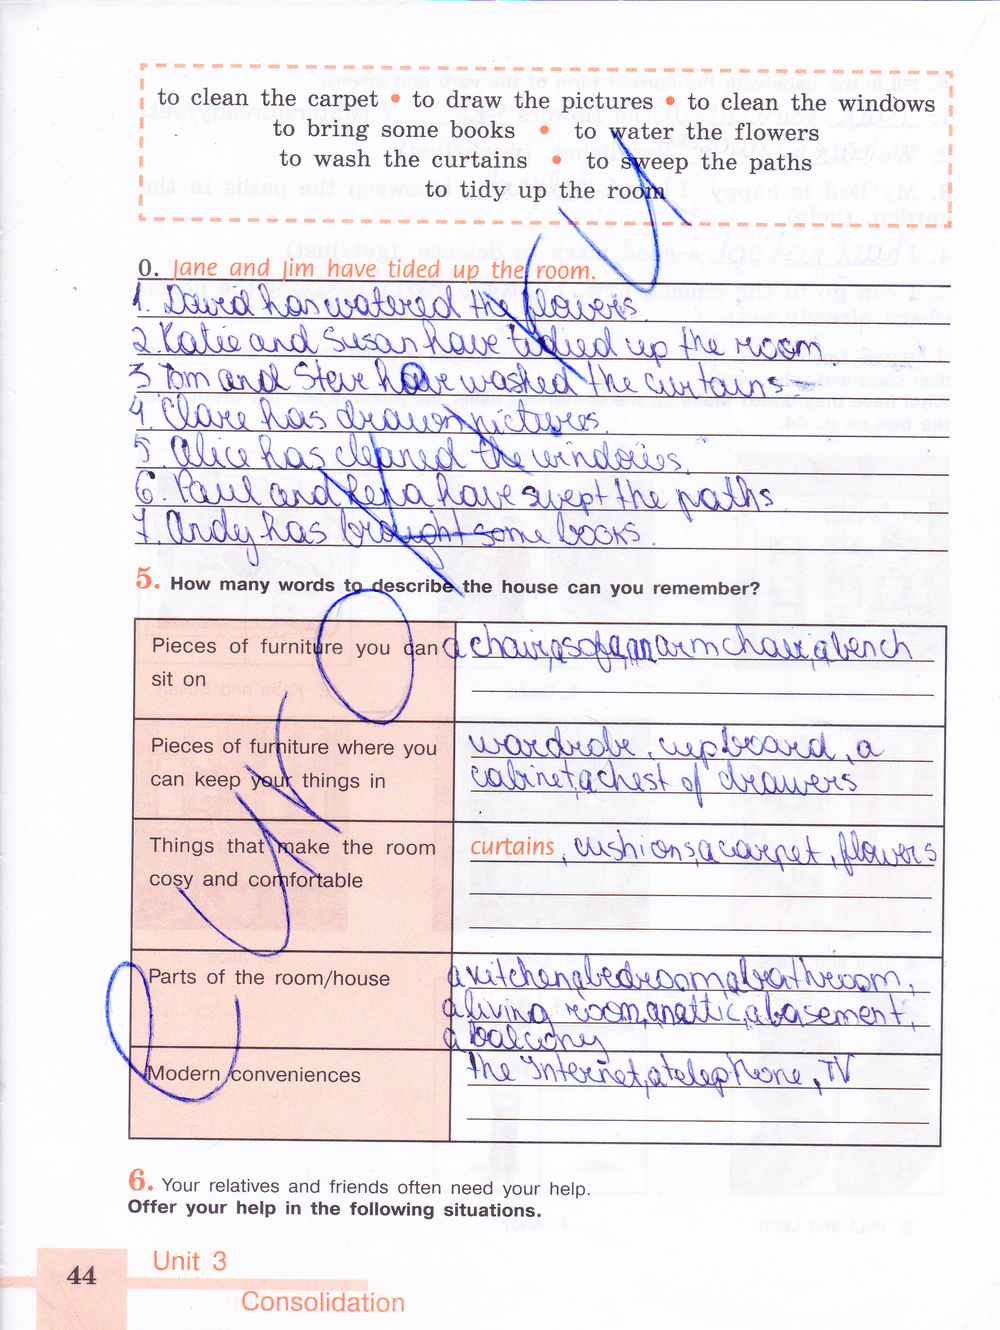 to clean the carpet • to draw the pictures • to clean the windows
to bring some books • to water the flowers
to wash the curtains • to sweep the paths
to tidy up the room
0. Jane and Jim have tided up the room.
1. David has watered the flowers.
2. Katie and Susan have tidied up the room
3 Tom and Steve have washed the curtains.
4. Clare has drawn pictures.
5. Alice has cleaned the windows.
6. Paul and Lena have swept the paths
7. Andy has brought some books.
5. How many words to describe the house can you remember?
Pieces of furniture you can sit on
a chair, a sofa, an armchair, a bench
Pieces of furniture where you can keep your things in
wardrobe, cupboard, a
cabinet, a chest of drawers
Things that make the room cosy and comfortable
curtains, cushions, a carpet, flowers
Parts of the room/house
a kitchen, a bedroom, a bathroom,
a living room, an attic, a basement,
a balcony
Modern conveniences
the Internet, a telephone, TV
6. Your relatives and friends often need your help.
Offer your help in the following situations.
44
Unit 3
Consolidation